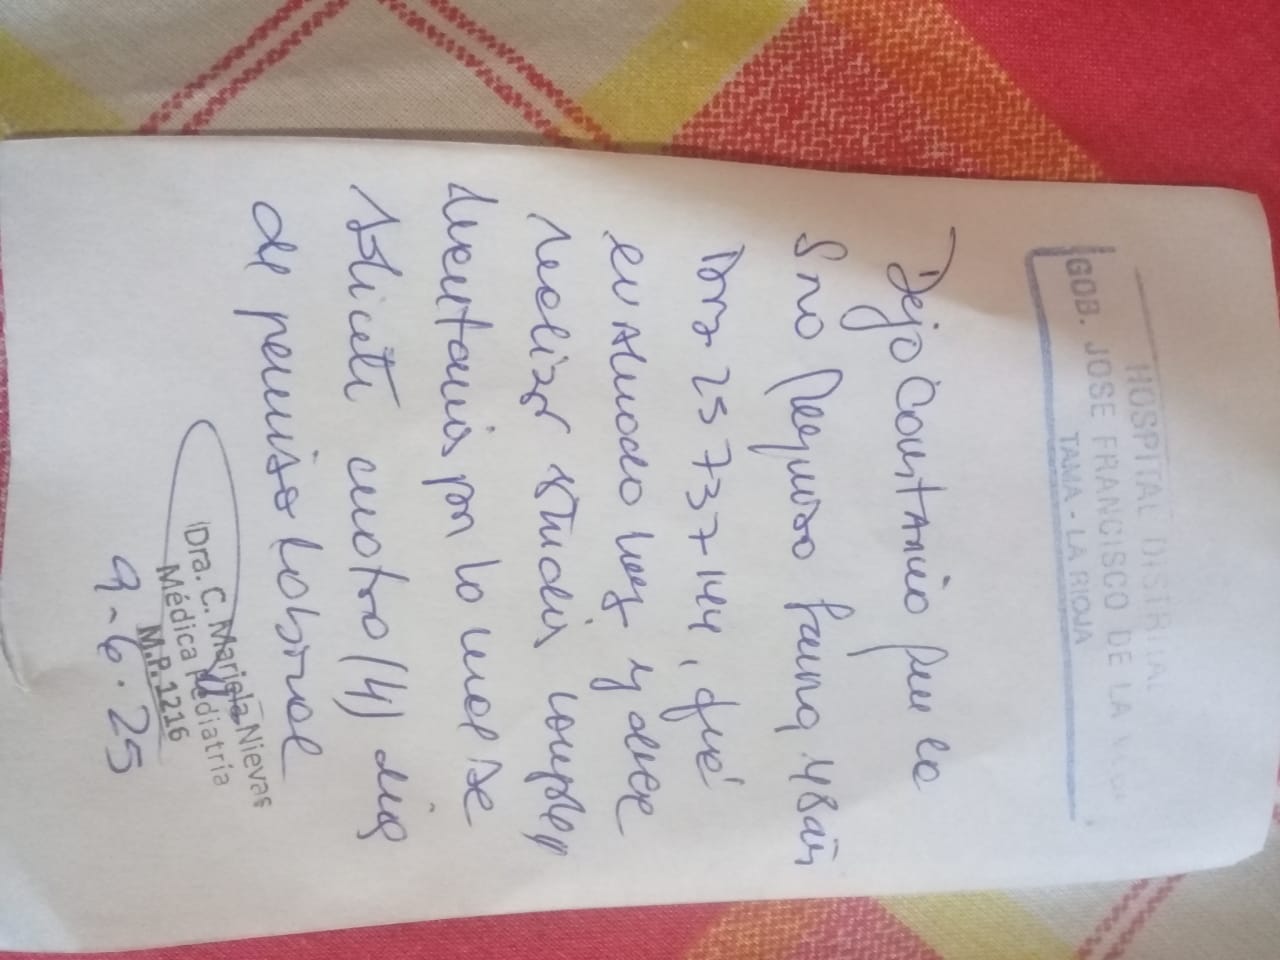 HOSPITAL DISTRITAL
GOB. JOSE FRANCISCO DE LA VEGA
TAMA - LA RIOJA
Dejo constancia que la
Sra 48 años
DNI 25737144, fué
evaluada hoy y debe
realizar estudios comple
mentarios por lo cual se
solicita cuatro (4) días
de permiso laboral
Dra. C. Mariela Nievas
Médica Pediatría
M.P. 1216
9-6-25